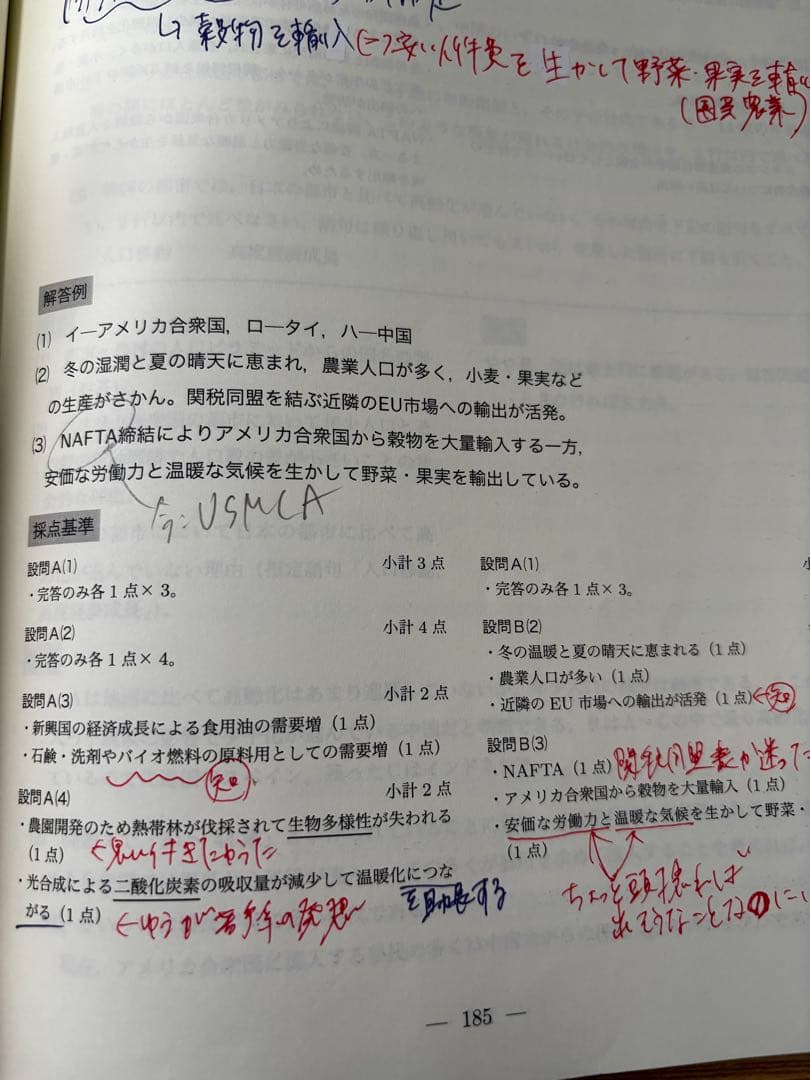 ↳ 穀物を輸入 (一方安い人件費を生かして野菜・果実を輸
(園芸農業)
解答例
(1) イ―アメリカ合衆国, ロ―タイ, ハ―中国
(2) 冬の湿潤と夏の晴天に恵まれ, 農業人口が多く, 小麦・果実など
の生産がさかん。関税同盟を結ぶ近隣のEU市場への輸出が活発。
(3) NAFTA締結によりアメリカ合衆国から穀物を大量輸入する一方,
安価な労働力と温暖な気候を生かして野菜・果実を輸出している。
今:USMCA
採点基準
設問A(1) 小計3点
・完答のみ各1点×3。
設問A(2) 小計4点
・完答のみ各1点×4。
設問A(3) 小計2点
・新興国の経済成長による食用油の需要増(1点)
・石鹸・洗剤やバイオ燃料の原料用としての需要増(1点)
知
設問A(4) 小計2点
・農園開発のため熱帯林が伐採されて生物多様性が失われる
(1点)
・光合成による二酸化炭素の吸収量が減少して温暖化につな
がる(1点)
を助長する
設問A(1)
・完答のみ各1点×3。
設問B(2)
・冬の温暖と夏の晴天に恵まれる(1点)
・農業人口が多い(1点)
・近隣のEU市場への輸出が活発(1点) 知
設問B(3)
・NAFTA(1点) 関税同盟と迷った
・アメリカ合衆国から穀物を大量輸入(1点)
・安価な労働力と温暖な気候を生かして野菜・
(1点)
ちょっと頭捻れば
出そうなことなのに
― 185 ―